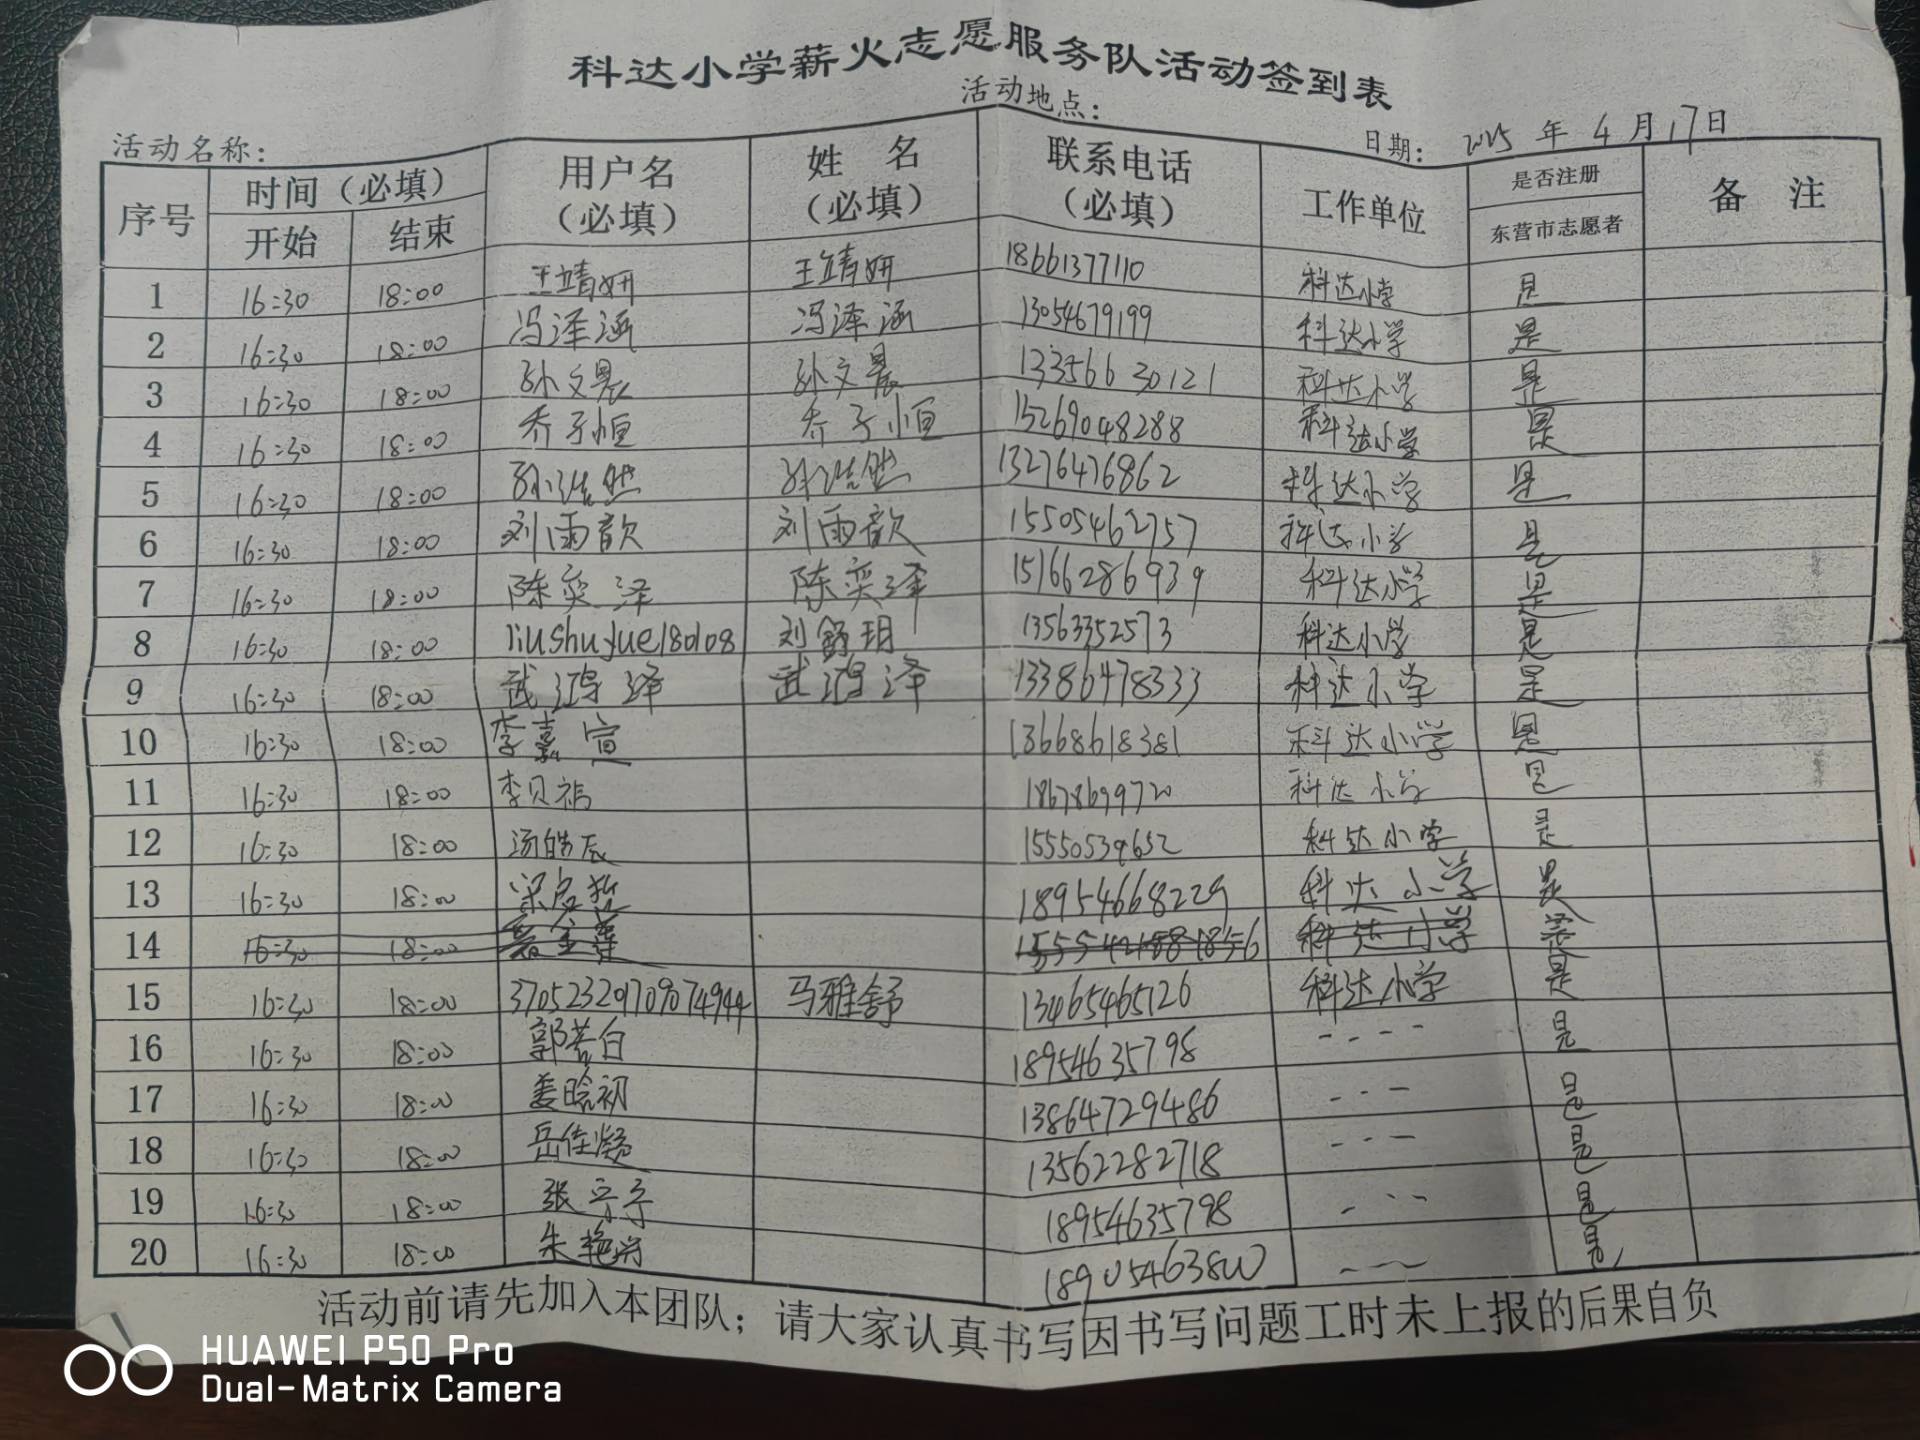 科达小学薪火志愿服务队活动签到表
活动名称： 活动地点： 日期： 2025 年 4 月 17 日
序号 时间（必填） 用户名（必填） 姓 名（必填） 联系电话（必填） 工作单位 是否注册 备 注
开始 结束 东营市志愿者
1 16:30 18:00 王靖妍 王靖妍 18661377110 科达小学 是
2 16:30 18:00 冯泽涵 冯泽涵 13054679199 科达小学 是
3 16:30 18:00 孙文晨 孙文晨 13356630121 科达小学 是
4 16:30 18:00 乔子恒 乔子恒 15269048288 科达小学 是
5 16:30 18:00 孙浩然 孙浩然 13276476862 科达小学 是
6 16:30 18:00 刘雨歆 刘雨歆 15505462757 科达小学 是
7 16:30 18:00 陈奕泽 陈奕泽 15166286939 科达小学 是
8 16:30 18:00 liushuyue180108 刘舒玥 13563352573 科达小学 是
9 16:30 18:00 武鸿泽 武鸿泽 13386478333 科达小学 是
10 16:30 18:00 李嘉宣 13668618381 科达小学 是
11 16:30 18:00 李贝祺 18678699720 科达小学 是
12 16:30 18:00 汤皓辰 15550539652 科达小学 是
13 16:30 18:00 18954668229 科达小学 是
14 16:30 18:00 科达小学
15 16:30 18:00 370523201709074944 马雅舒 13465465126 科达小学 是
16 16:30 18:00 郭若白 18954635798 ---- 是
17 16:30 18:00 娄晗初 13864729486 --- 是
18 16:30 18:00 岳佳凝 13562282718 ---- 是
19 16:30 18:00 张宁宁 18954635798 --- 是
20 16:30 18:00 18905463800 --- 是
活动前请先加入本团队；请大家认真书写因书写问题工时未上报的后果自负
HUAWEI P50 Pro
Dual-Matrix Camera